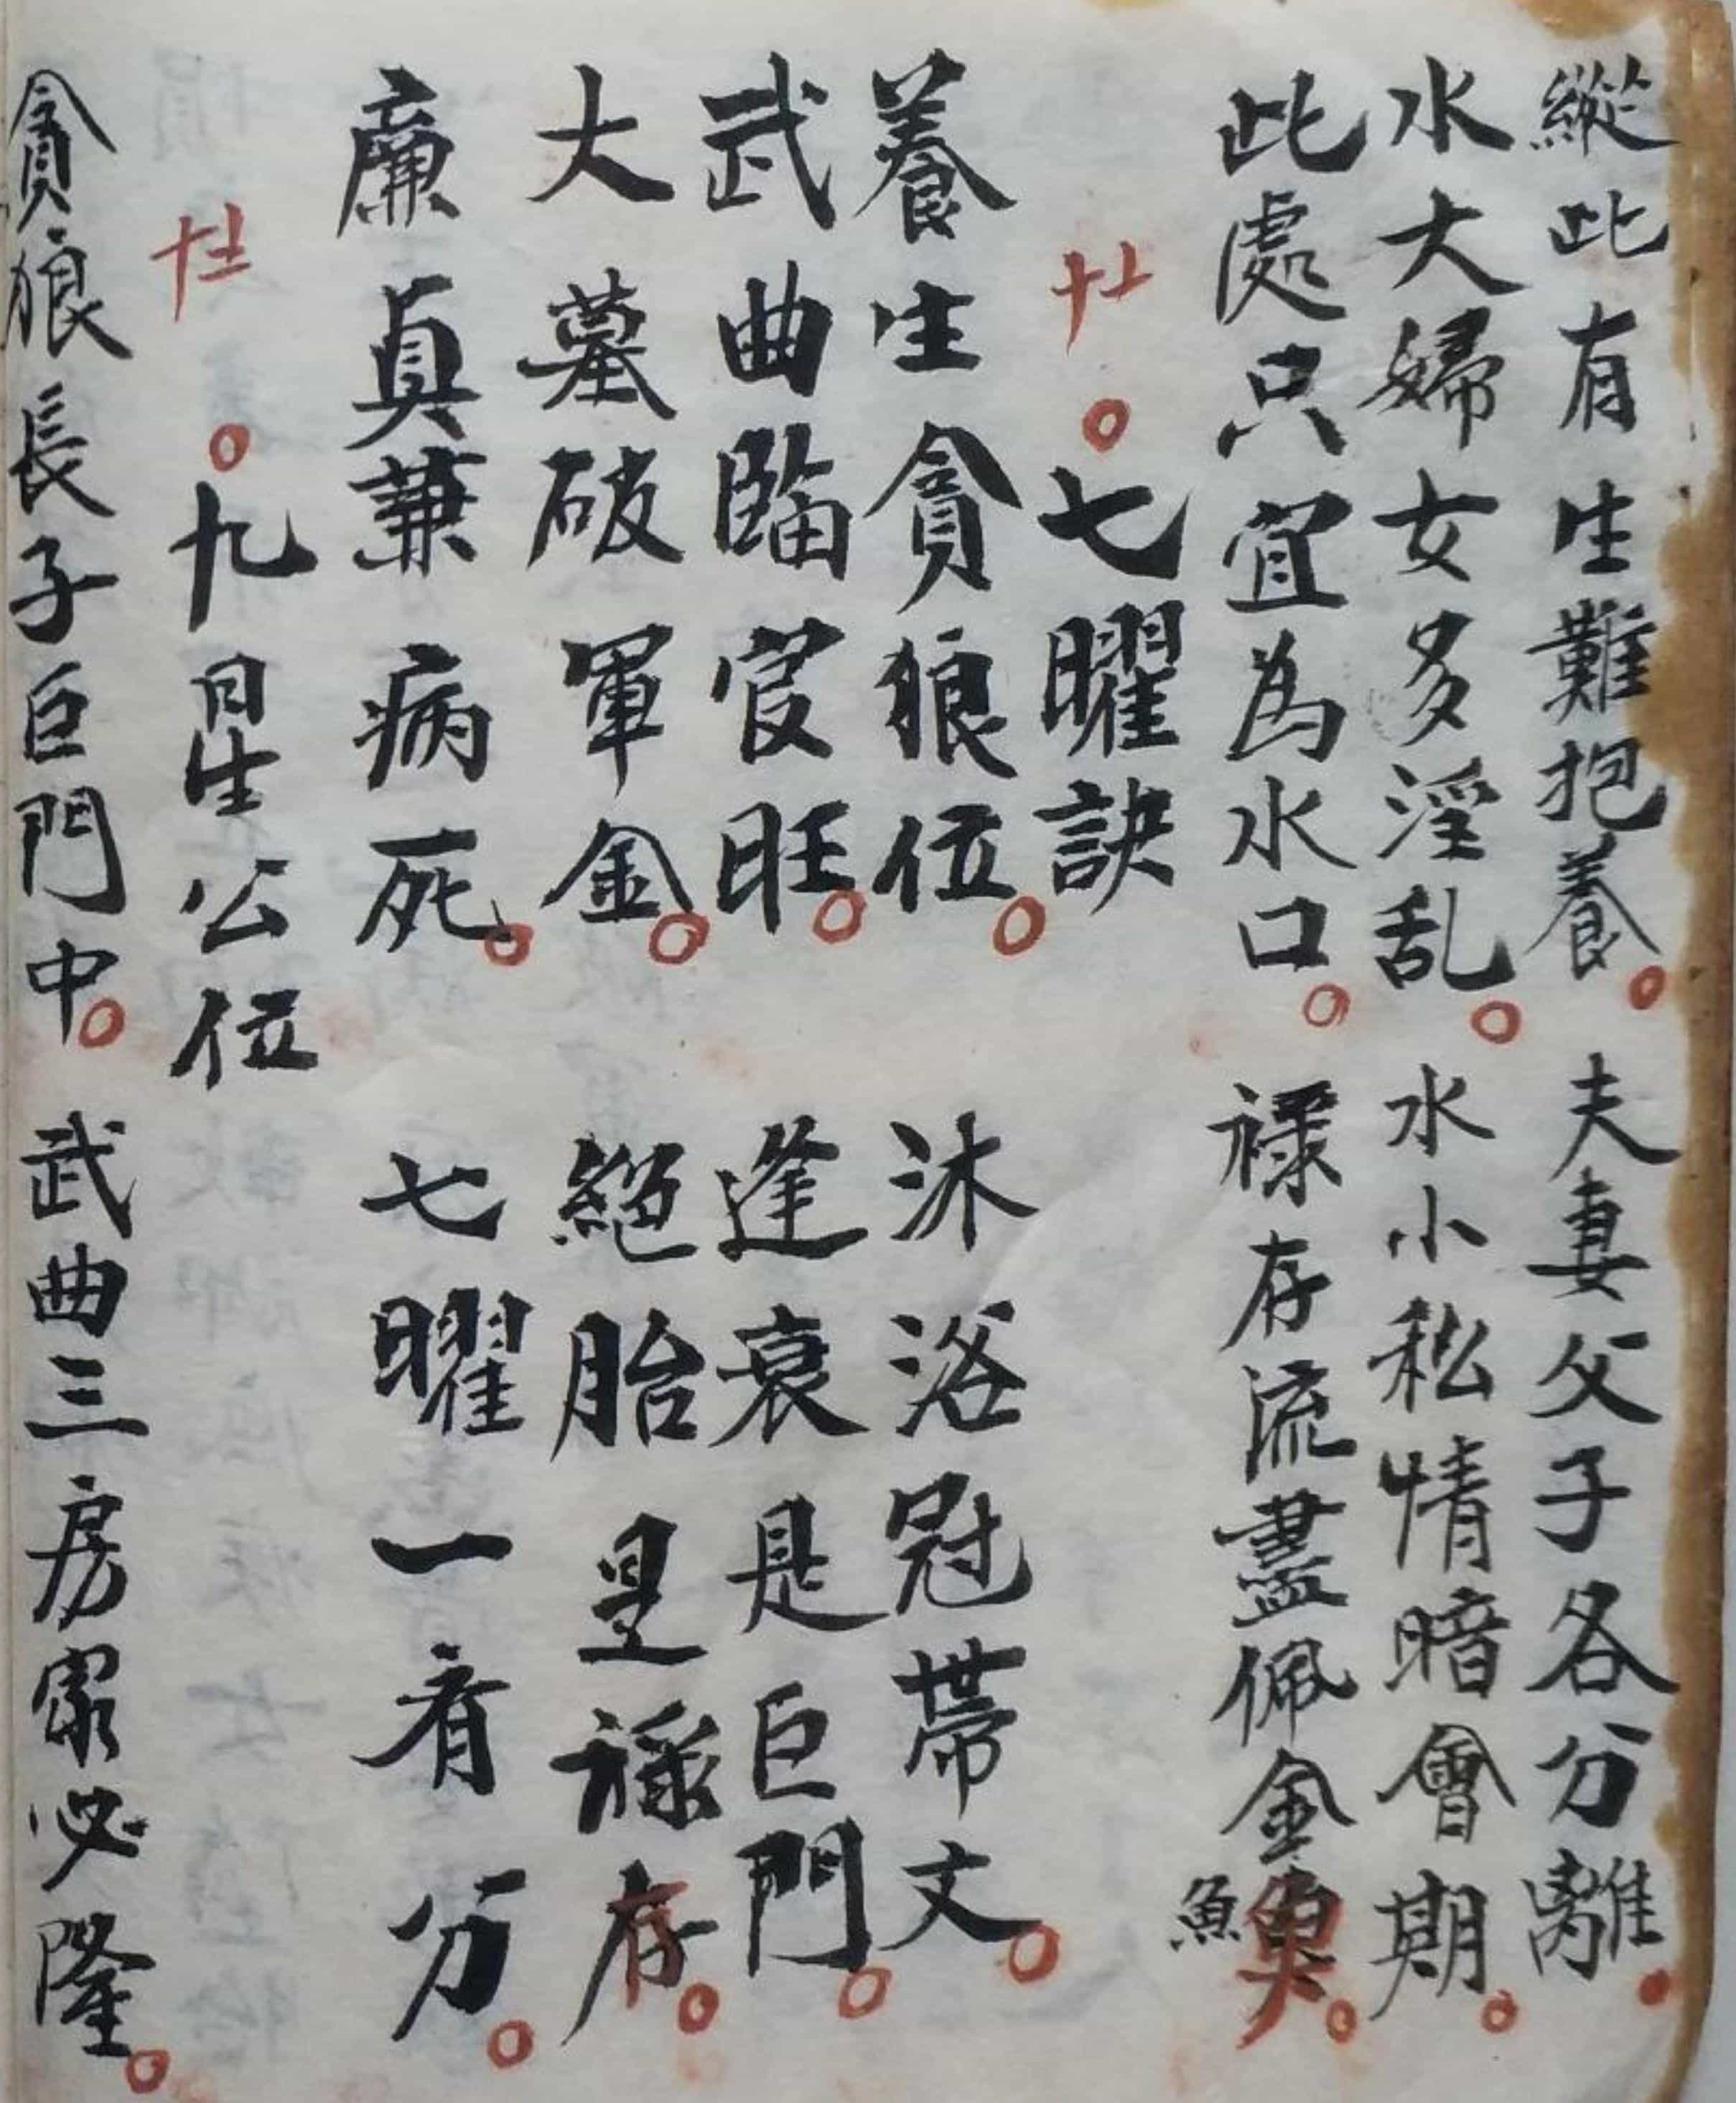 縱此有生難抱養。夫妻父子各分離。
水大婦女多淫乱。水小私情暗會期。
此處只宜為水口。祿存流盡佩金魚。
七曜訣
養生貪狼位。沐浴冠帶文。
武曲臨官旺。逢衰是巨門。
大墓破軍金。絕胎是祿存。
廉貞兼病死。七曜一看分。
九星公位
貪狼長子巨門中。武曲三房家必隆。